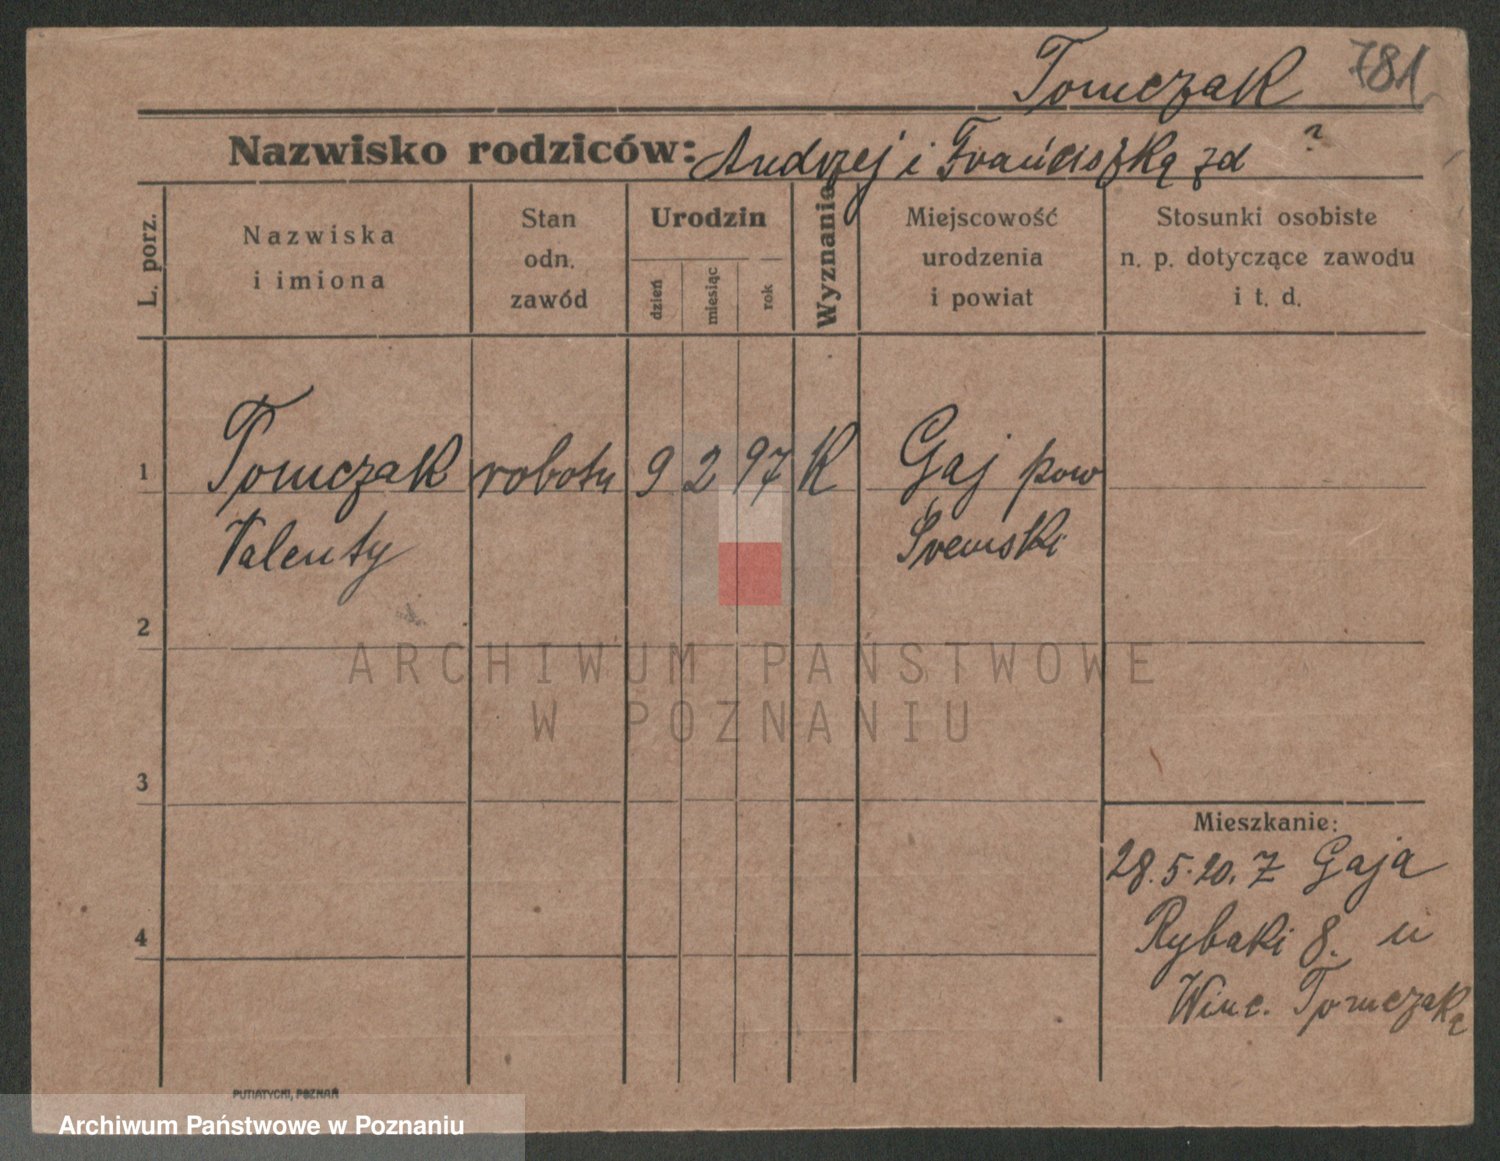 Tomczak 781
Nazwisko rodziców: Andrzej i Franciszką zd ?
L. porz.
Nazwiska
i imiona
Stan
odn.
zawód
Urodzin
dzień
miesiąc
rok
Wyznania
Miejscowość
urodzenia
i powiat
Stosunki osobiste
n. p. dotyczące zawodu
i t. d.
1 Tomczak robotn 9 2 97 K Gaj pow
Valenty Śremski
2
ARCHIWUM PAŃSTWOWE
W POZNANIU
3
Mieszkanie:
28.5.20. Z Gaja
4 Rybaki 8. u
Winc. Tomczaka
PUTIATYCKI, POZNAŃ
Archiwum Państwowe w Poznaniu